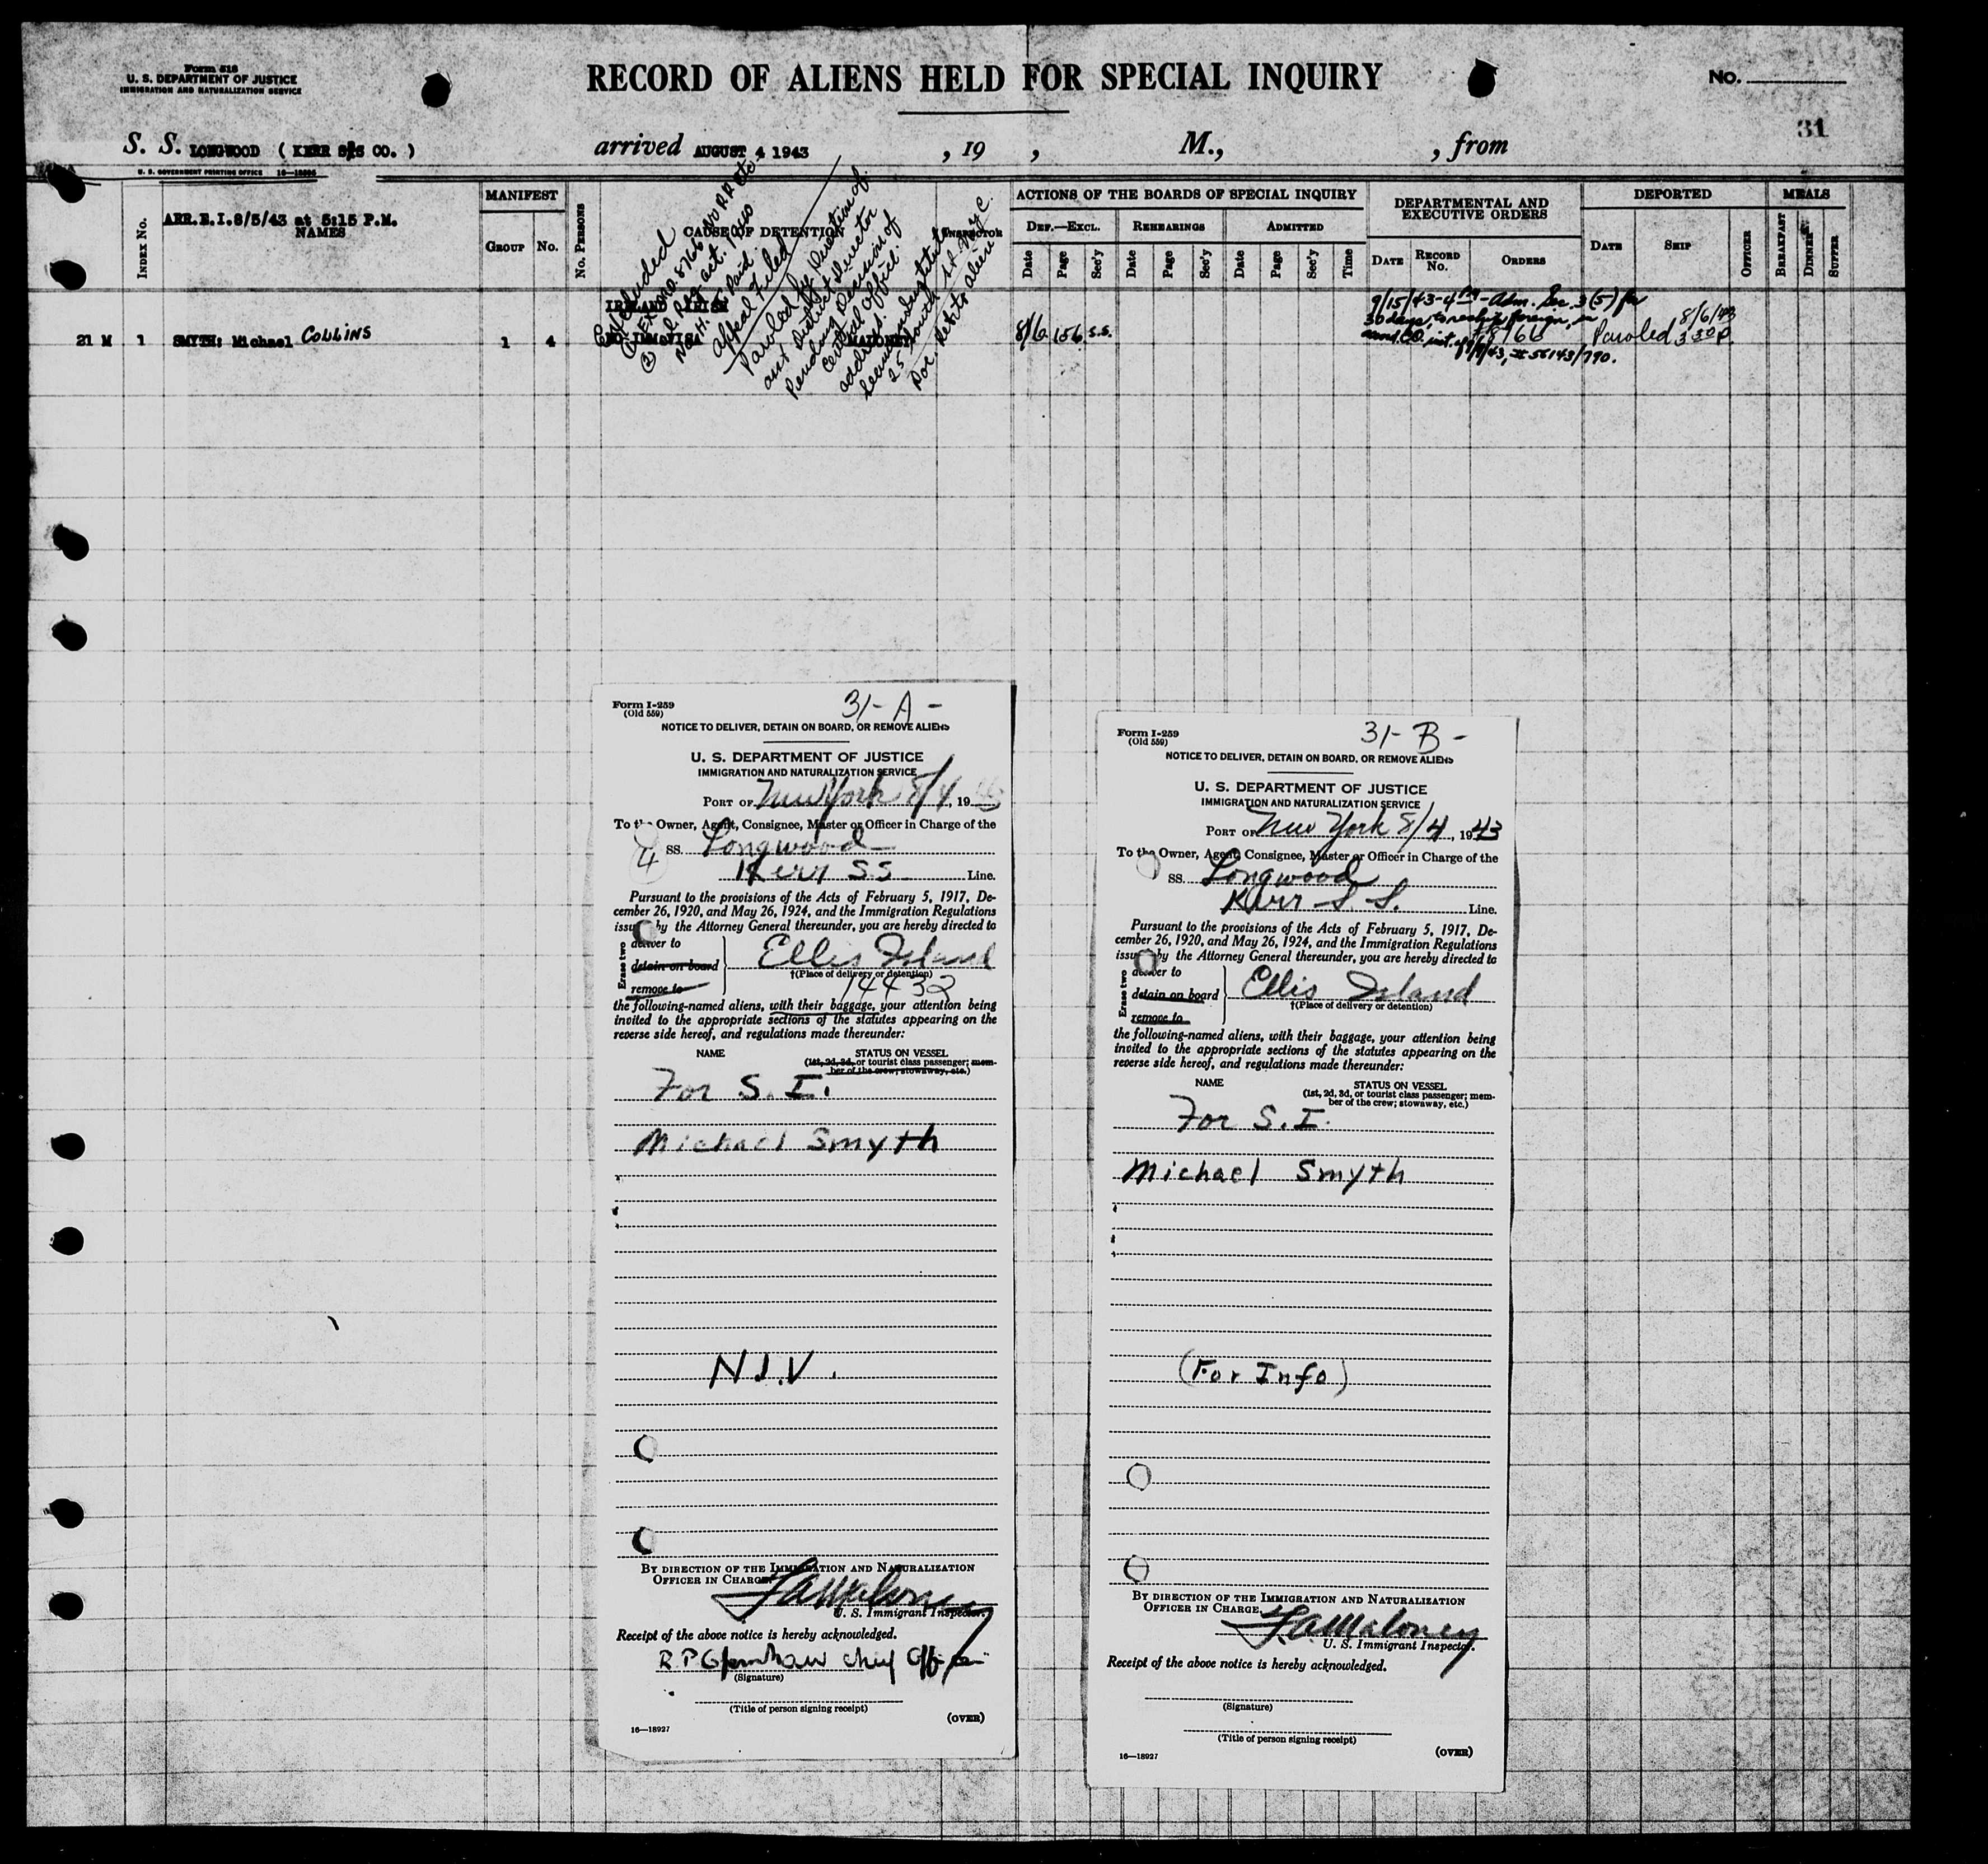 Form 518
U. S. DEPARTMENT OF JUSTICE
IMMIGRATION AND NATURALIZATION SERVICE
RECORD OF ALIENS HELD FOR SPECIAL INQUIRY
No.
31
S. S. LONGWOOD ( KERR S/S CO. ) arrived AUGUST 4 1943 , 19 , M., , from
U. S. GOVERNMENT PRINTING OFFICE
INDEX No.
ARR.E.I.8/5/43 at 5:15 P.M.
NAMES
MANIFEST
GROUP No.
No. PERSONS
CAUSE OF DETENTION
INSPECTOR
ACTIONS OF THE BOARDS OF SPECIAL INQUIRY
DEF.—EXCL. REHEARINGS ADMITTED
Date Page Sec'y Date Page Sec'y Date Page Sec'y Time
DEPARTMENTAL AND
EXECUTIVE ORDERS
DATE RECORD No. ORDERS
DEPORTED
DATE SHIP OFFICER
MEALS
BREAKFAST DINNER SUPPER
21 M 1 SMYTH: Michael COLLINS 1 4
IRELAND IRISH
NO IMM VISA MALONEY
Excluded
Appeal Filed
Paroled by Direction of
District Director
Pending Decision of
Central Office
address:
25 South St. N.Y.C.
8/6 156 S.S.
9/15/43-4 - Adm. Sec. 3(5) for
30 days, to reship foreign, in
# 56143/790.
8/6/43
Paroled 3 30 P
Form I-259
(Old 559)
31-A-
NOTICE TO DELIVER, DETAIN ON BOARD, OR REMOVE ALIENS
U. S. DEPARTMENT OF JUSTICE
IMMIGRATION AND NATURALIZATION SERVICE
PORT OF New York 8/4, 19
To the Owner, Agent, Consignee, Master or Officer in Charge of the
4 SS. Longwood
Kerr S.S. Line.
Pursuant to the provisions of the Acts of February 5, 1917, De-
cember 26, 1920, and May 26, 1924, and the Immigration Regulations
issued by the Attorney General thereunder, you are hereby directed to
Erase two
deliver to
detain on board
remove to
Ellis Island
†(Place of delivery or detention)
14432
the following-named aliens, with their baggage, your attention being
invited to the appropriate sections of the statutes appearing on the
reverse side hereof, and regulations made thereunder:
NAME STATUS ON VESSEL
(1st, 2d, 3d, or tourist class passenger; mem-
ber of the crew; stowaway, etc.)
For S. I.
Michael Smyth
N.I.V.
BY DIRECTION OF THE IMMIGRATION AND NATURALIZATION
OFFICER IN CHARGE.
F A Maloney
U. S. Immigrant Inspector.
Receipt of the above notice is hereby acknowledged.
chief Officer
(Signature)
(Title of person signing receipt)
16—18927 (OVER)
Form I-259
(Old 559)
31-B-
NOTICE TO DELIVER, DETAIN ON BOARD, OR REMOVE ALIENS
U. S. DEPARTMENT OF JUSTICE
IMMIGRATION AND NATURALIZATION SERVICE
PORT OF New York 8/4, 1943
To the Owner, Agent, Consignee, Master or Officer in Charge of the
SS. Longwood
Kerr S. S. Line.
Pursuant to the provisions of the Acts of February 5, 1917, De-
cember 26, 1920, and May 26, 1924, and the Immigration Regulations
issued by the Attorney General thereunder, you are hereby directed to
Erase two
deliver to
detain on board
remove to
Ellis Island
†(Place of delivery or detention)
the following-named aliens, with their baggage, your attention being
invited to the appropriate sections of the statutes appearing on the
reverse side hereof, and regulations made thereunder:
NAME STATUS ON VESSEL
(1st, 2d, 3d, or tourist class passenger; mem-
ber of the crew; stowaway, etc.)
For S. I.
Michael Smyth
(For Info)
BY DIRECTION OF THE IMMIGRATION AND NATURALIZATION
OFFICER IN CHARGE.
F A Maloney
U. S. Immigrant Inspector.
Receipt of the above notice is hereby acknowledged.
(Signature)
(Title of person signing receipt)
16—18927 (OVER)